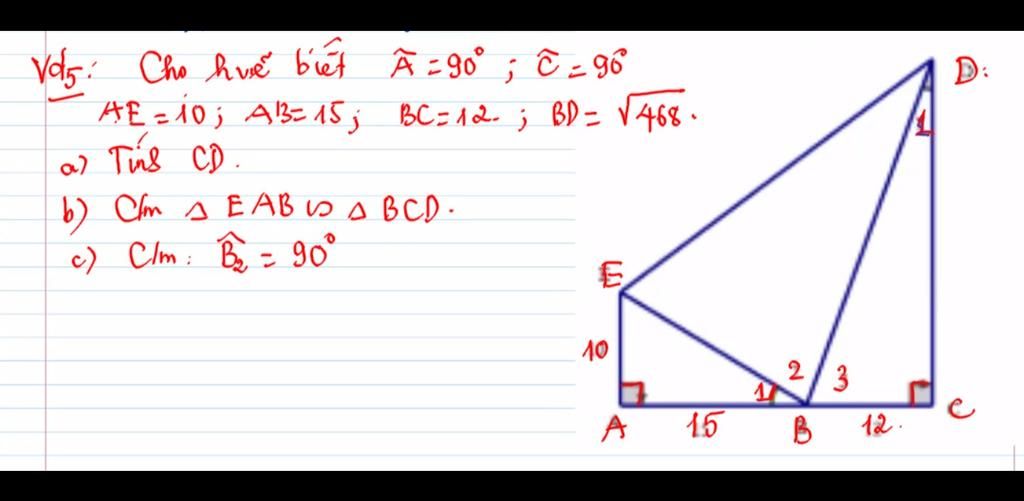 Vd5: Cho hvẽ biết Â = 90° ; Ĉ = 90°
AE = 10 ; AB = 15 ; BC = 12 ; BD = √468.
a) Tính CD.
b) C/m △ EAB ∽ △ BCD.
c) C/m: B̂₂ = 90°
D:
1
E
10
2
3
1
A
15
B
12.
C